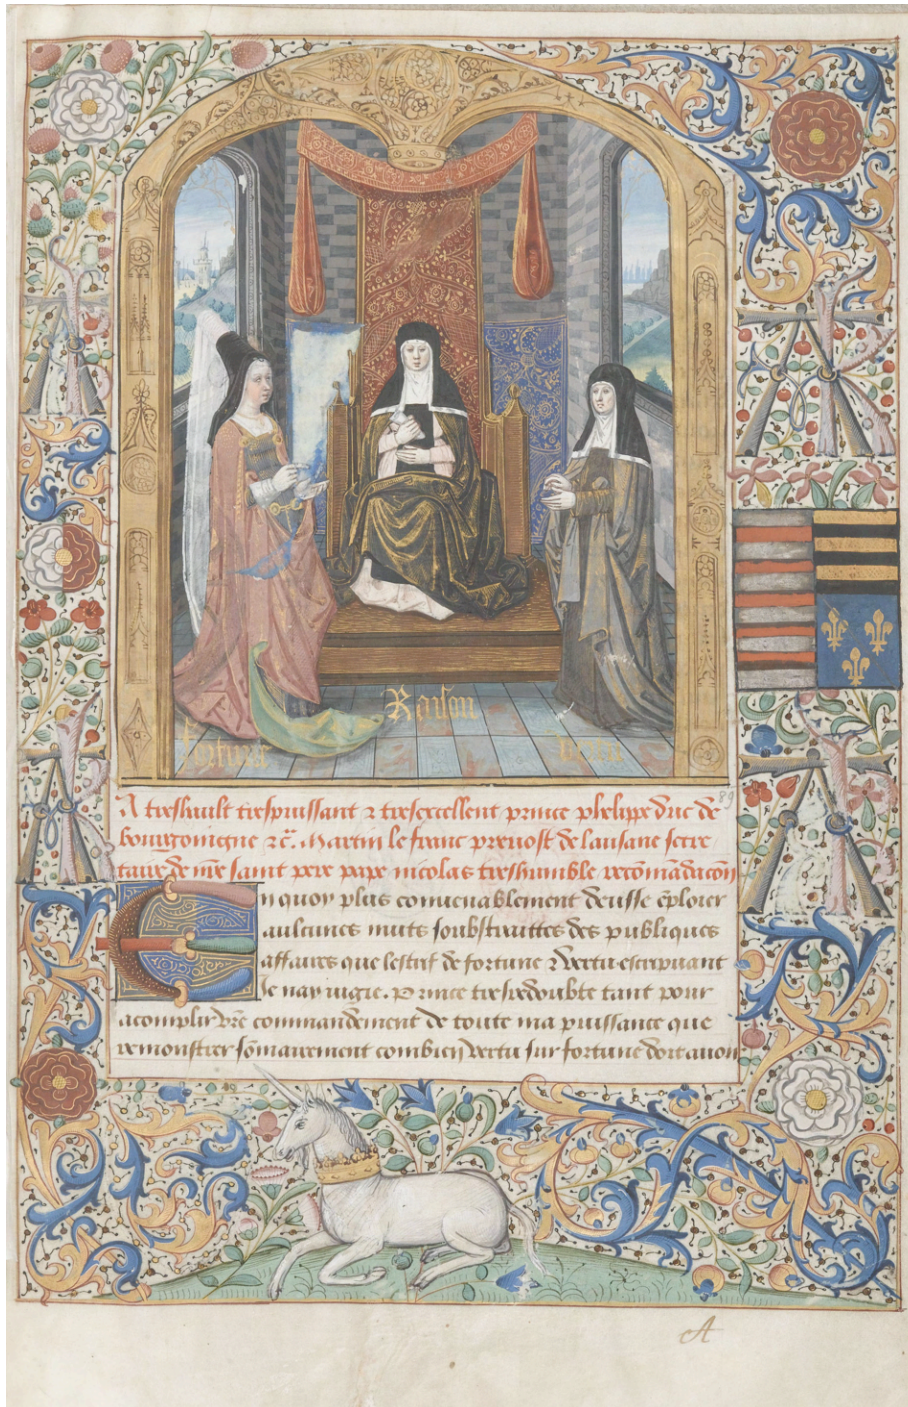 fortune
Raison
Vertu
89
A treshault trespuissant & tresexcellent prince phelippe duc de
bourgoingne &c. Martin le franc prevost de lausane secre
taire de nre saint pere pape nicolas treshumble recomādacion
En quoy plus convenablement deusse ēplorer
aulcunes nuits soubstraittes des publiques
affaires que lestrif de fortune & vertu escripvant
le nay iugie. Prince tresredoubte tant pour
acomplir vre commandement de toute ma puissance que
remonstrer sōmairement combien vertu sur fortune dort avoir
A